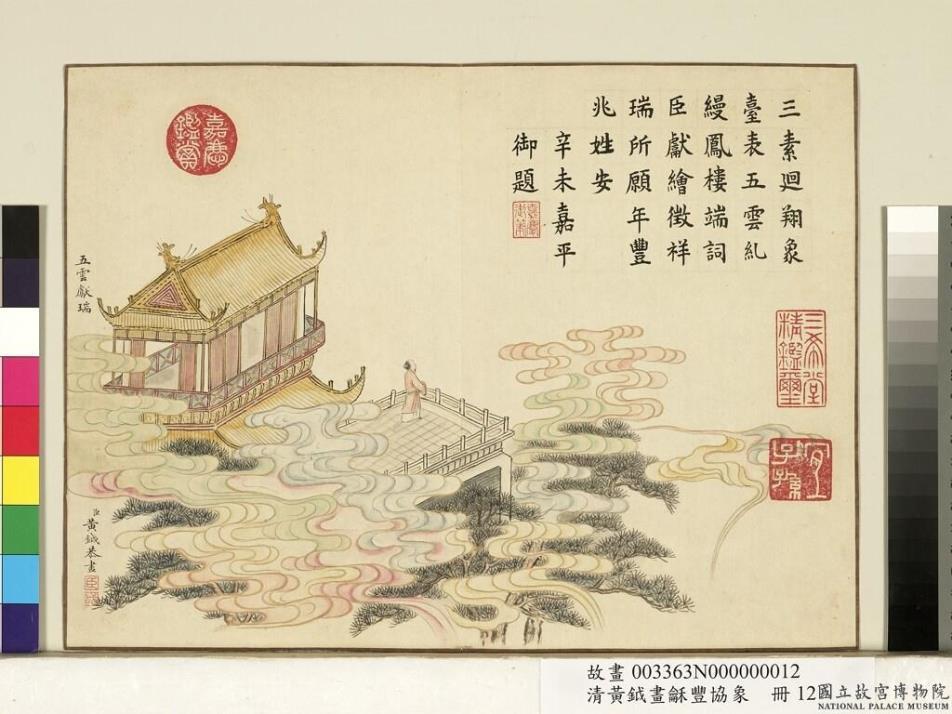 三素迴翔象
臺表五雲糺
縵鳳樓端詞
臣獻繪徵祥
瑞所願年豐
兆姓安
辛未嘉平
御題
嘉慶御筆
三希堂精鑑璽
宜子孫
嘉慶鑑賞
五雲獻瑞
臣黃鉞恭畫
故畫 003363N000000012
清黃鉞畫龢豐協象 冊 12
國立故宮博物院
NATIONAL PALACE MUSEUM